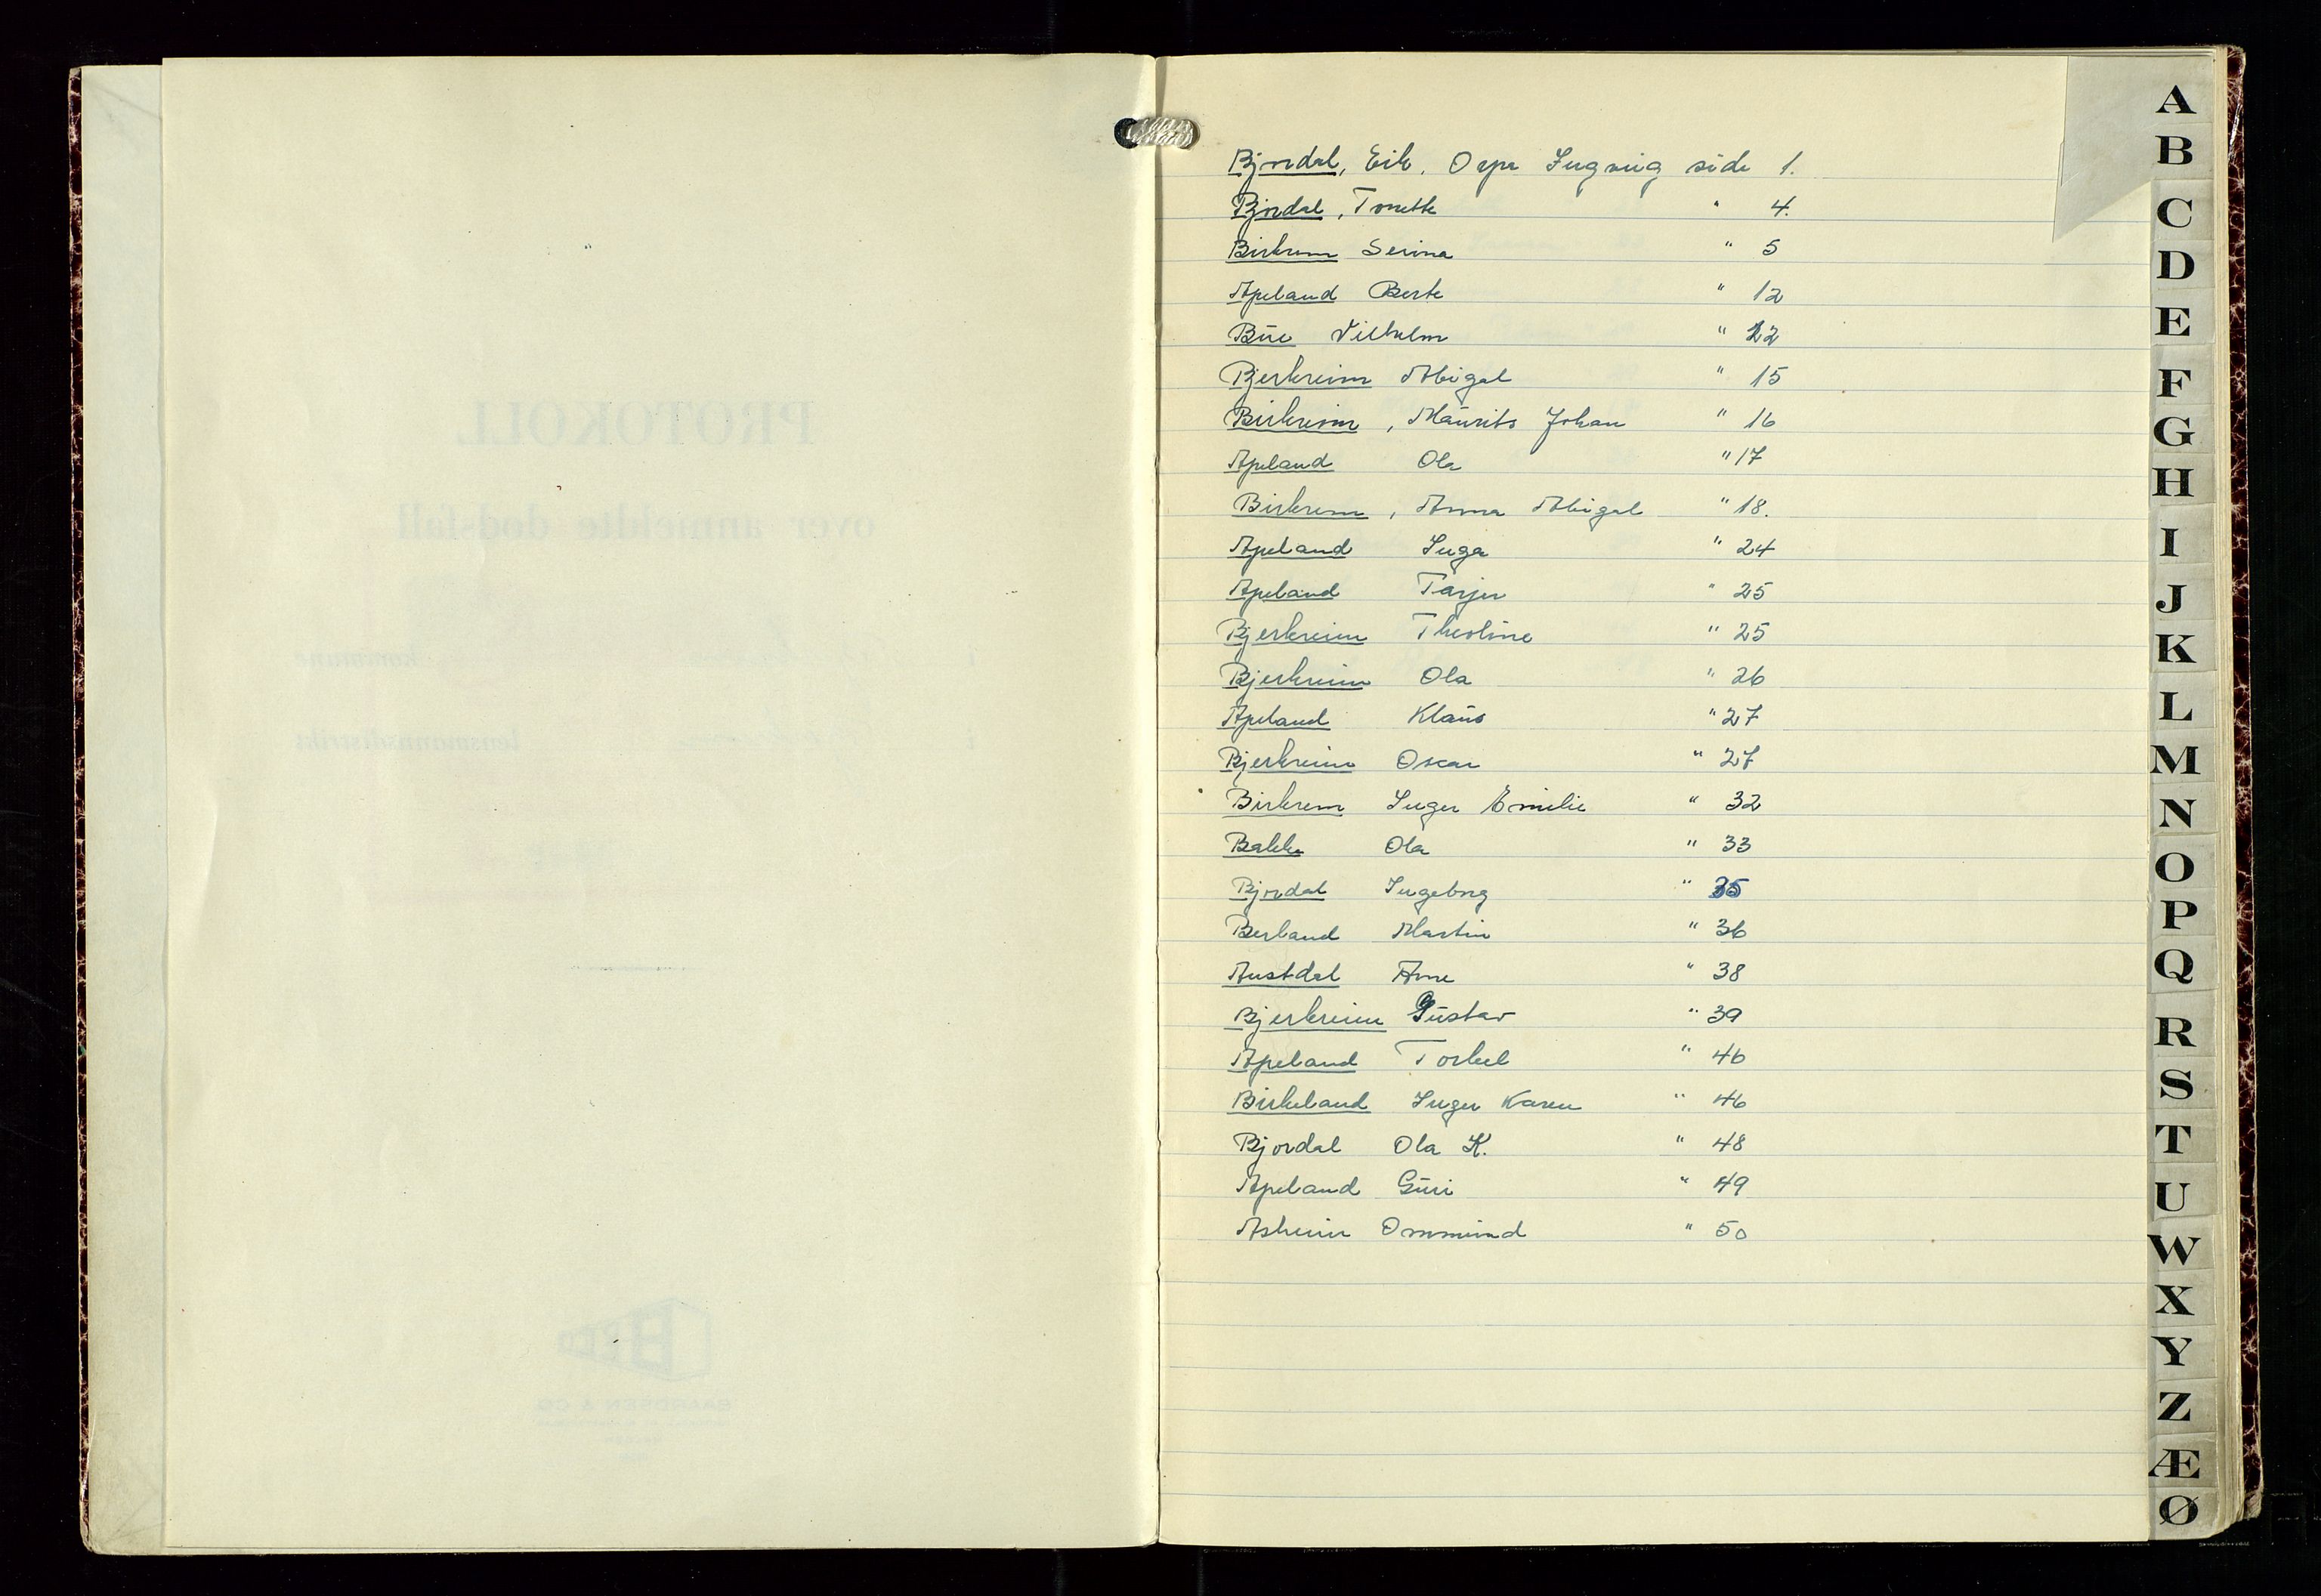 Bjordal, Eik. Orpa Ingveig side 1.
Bjordal, Tonette " 4.
Birkrem Serina " 5
Apeland Berte " 12
Bue Vilhelm " 22
Bjerkreim Abigal " 15
Birkreim, Maurits Johan " 16
Apeland Ola " 17
Birkrem, Anna Abigal " 18.
Apeland Inga " 24
Apeland Tarjer " 25
Bjerkreim Theoline " 25
Bjerkreim Ola " 26
Apeland Klaus " 27
Bjerkreim Oscar " 27
Birkrem Inger Emilie " 32
Bakke Ola " 33
Bjordal Ingeborg " 35
Berland Martin " 36
Austdal Arne " 38
Bjerkreim Gustav " 39
Apeland Torkel " 46
Birkeland Inger Karen " 46
Bjordal Ola K. " 48
Apeland Guri " 49
Asheim Ommund " 50
A
B
C
D
E
F
G
H
I
J
K
L
M
N
O
P
Q
R
S
T
U
W
X
Y
Z
Æ
Ø